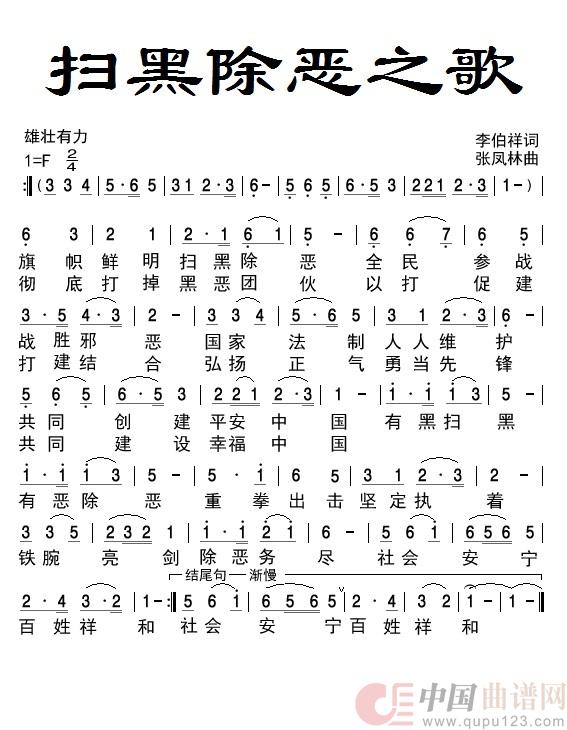 扫黑除恶之歌
雄壮有力
李伯祥词
1=F 2/4
张凤林曲
:‖(3 3 4 | 5·6 5 | 3 1 2·3 | 6 - | 5 6 5 | 1 2 3 5 3 | 2 2 1 2·3 | 1 - ) |
6 3 | 2 1 | 2·1 6 1 | 5 - | 6 6 7 | 6 5 |
旗帜鲜明扫黑除恶全民参战
彻底打掉黑恶团伙以打促建
3·5 4·3 | 2 - | 3 3 4 | 5·6 5 | 3 1 2·3 | 6 - |
战胜邪恶国家法制人人维护
打建结合弘扬正气勇当先锋
5 6 5 | 1 2 3 5·3 | 2 2 1 2·3 | 1 - | 1·1 1 3 |
共同创建平安中国有黑扫黑
共同建设幸福中国
1·1 1 3 | 5·5 2·3 | 1 - | 6 5 | 3 1 2·3 |
有恶除恶重拳出击坚定执着
3 3 5 | 2 3 2 1 | 1·1 2 1 | 6 - | 5 6 1 | 6 5 6 5 |
铁腕亮剑除恶务尽社会安宁
结尾句 渐慢
2·4 3·2 | 1 - :‖ 5 6 1 | 6 5 6 5 | 2·4 | 3·2 | 1 - | 1 - ‖
百姓祥和社会安宁百姓祥和
中国曲谱网
www.qupu123.com